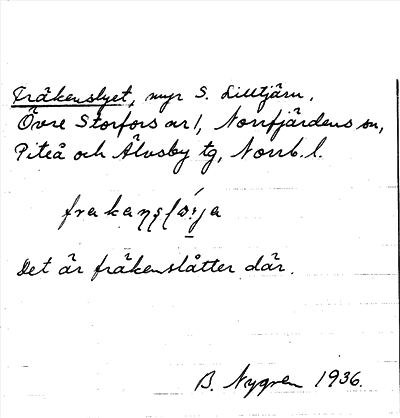 Fräkenslyet, myr S. Lilltjärn,
Övre Storfors ar 1, Norrfjärdens sn,
Piteå och Älvsby tg, Norrb. l.
Det är fräkenslåtter där.
B. Nygren 1936.